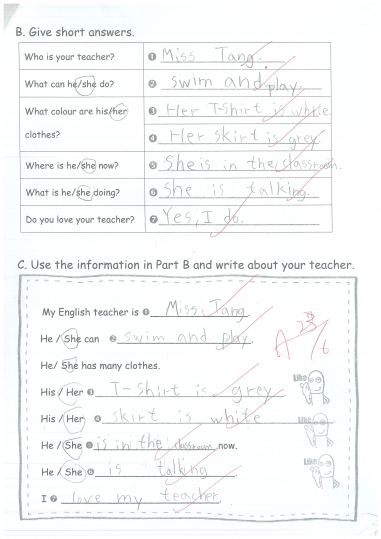 B. Give short answers.
Who is your teacher? ❶ Miss Tang.
What can he/she do? ❷ swim and play.
What colour are his/her clothes? ❸ Her T-shirt is white.
❹ Her skirt is grey.
Where is he/she now? ❺ She is in the classroom.
What is he/she doing? ❻ she is talking.
Do you love your teacher? ❼ Yes, I do.
C. Use the information in Part B and write about your teacher.
My English teacher is ❶ Miss Tang.
He / She can ❷ swim and play.
He/ She has many clothes.
His / Her ❸ T-shirt is grey
Like
His / Her ❹ skirt is white
Like
He / She ❺ is in the classroom now.
He / She ❻ is talking.
Like
I ❼ love my teacher.
A